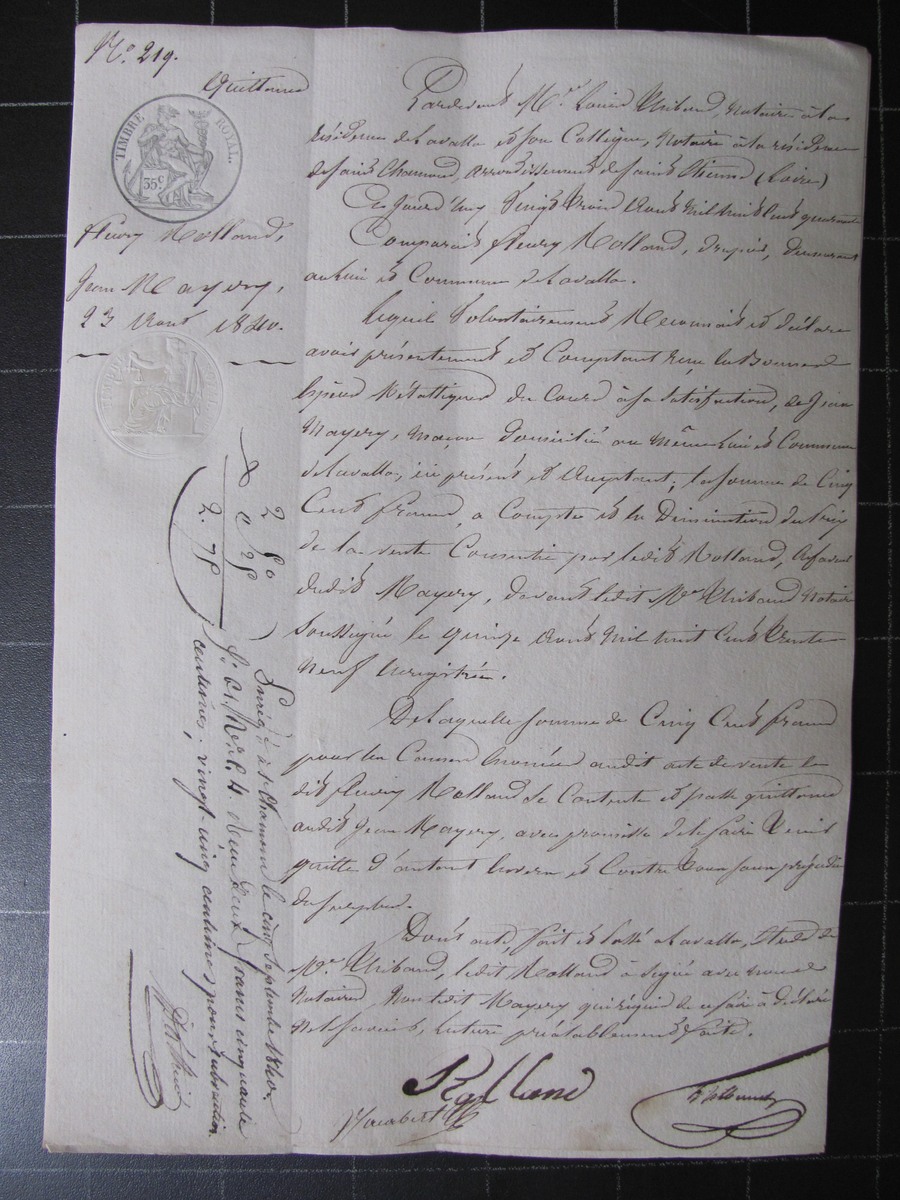 No. 219.
Quittance
TIMBRE ROYAL
35c
Fleury Rolland,
Jean Mayery,
23 Aout 1840.
Pardevant Me. Louis Thibaud, Notaire à la
résidence de Lavalla et son Collègue, Notaire à la résidence
de Saint Chamond, arrondissement de Saint Etienne (Loire)
Ce jourd'huy Vingt trois Aout Mil huit cent quarante
Comparait Fleury Rolland, demeurant
au Lieu et Commune de Lavalla.
Lequel Volontairement Reconnait et déclare
avoir présentement et Comptant reçu en Bonnes
Espèces Métalliques du Cours à sa Satisfaction, de Jean
Mayery, Maçon domicilié au Même Lieu et Commune
de Lavalla, ici présent et acceptant; la somme de Cinq
Cents francs, a Compte et en Diminution du Prix
de la vente Consentie par ledit Rolland, en faveur
dudit Mayery, devant ledit Me Thibaud Notaire
Soussigné le quinze Aout Mil huit Cent trente
Neuf Enregistrée.
De Laquelle somme de Cinq Cents francs
pour les Causes énoncées audit acte de vente le
dit Fleury Rolland se Contente et passe quittance
audit Jean Mayery, avec promesse de le faire tenir
quitte d'autant Envers et Contre tous sans préjudice
du surplus.
Dont acte, fait et Passé a Lavalla, Etude de
Me. Thibaud, ledit Rolland à Signé avec nous
Notaires, Non ledit Mayery qui requis de ce faire à déclaré
Ne Savoir, Lecture préalablement faite.
Rolland
2. 50
0 25
2. 75
Enregé. à St. Chamond le cinq Septembre 1840.
fo. 61. Ro. C. 4. reçu deux francs cinquante
centimes, vingt-cinq centimes pour subvention